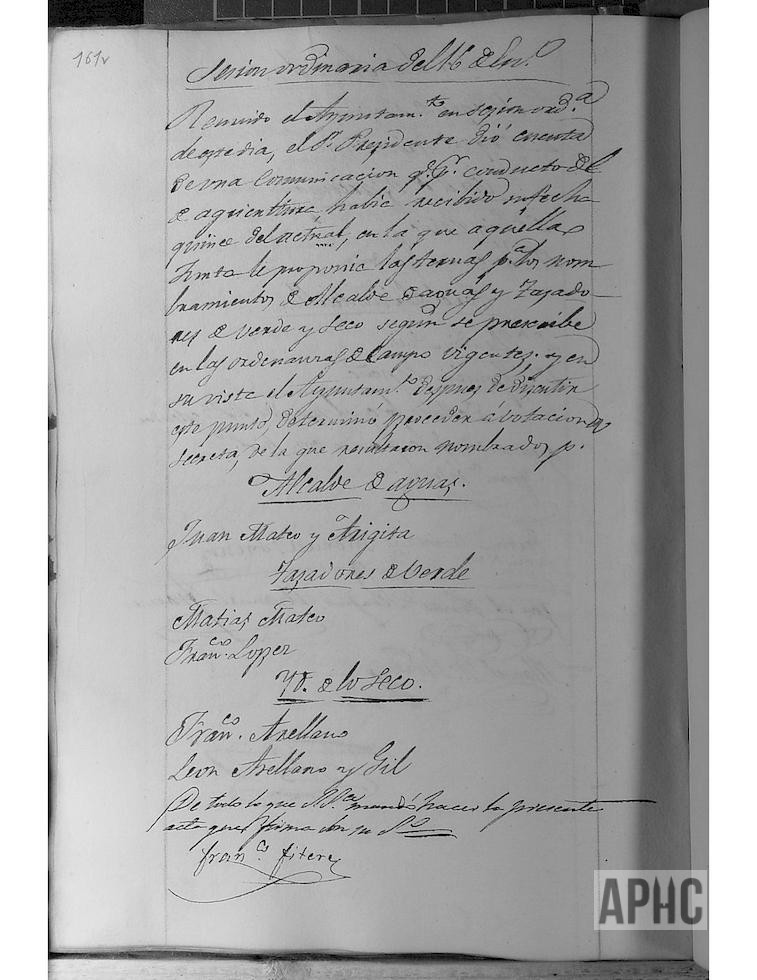 161v
Sesion ordinaria del 16 de En.º
Reunido el Ayuntam.to en sesion ord.a
de este dia, el Sr. Presidente dió cuenta
de una comunicacion q.e p.r conducto del
de agricultura habia recibido su fecha
quince del actual, en la que aquella
Junta le proponia las ternas p.a los nom
bramientos de Alcalde de aguas y Tasado
res de verde y seco segun se prescribe
en las ordenanzas de campo vigentes. y en
su vista el Ayuntam.to despues de discutir
este punto, determinó proceder a votacion
secreta, de la que resultaron nombrados p.
Alcalde de aguas.
Juan Mateo y Arigita
Tasadores de Verde
Matias Mateo
Fran.co Lopez
Yd. de lo Seco.
Fran.co Arellano
Leon Arellano y Gil
De todo lo que S.S.ea mandó hacer la presente
acta que firma con su S.º
Fran.co Fitero
APHC